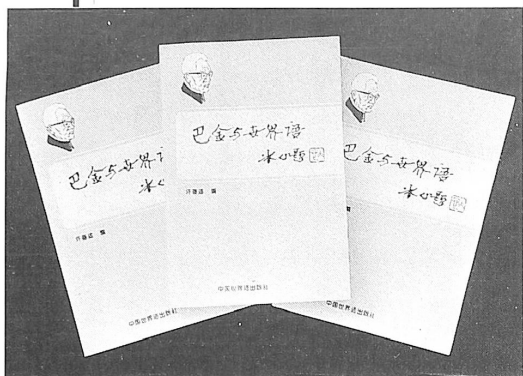 巴金与世界语
冰心
许善述 编
中国世界语出版社
巴金与世界语
冰心题
许善述 编
中国世界语出版社
巴金与世界语
冰心题
中国世界语出版社